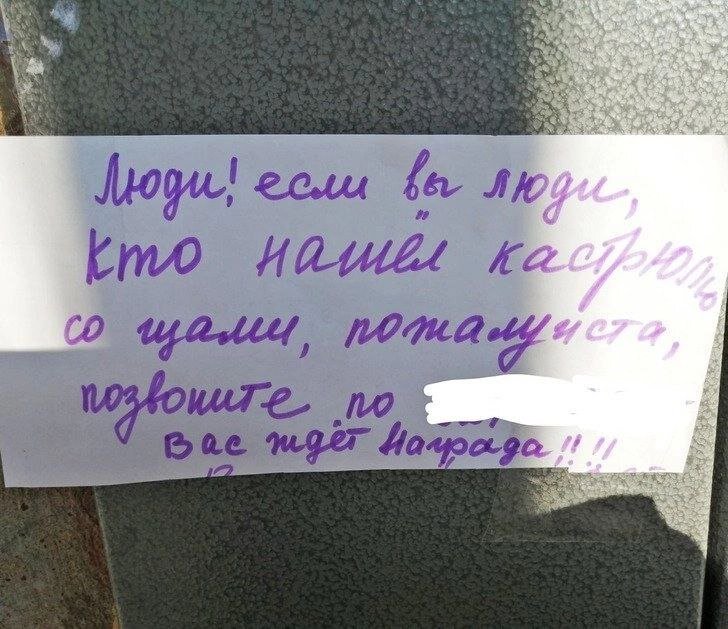 Люди! если вы люди,
Кто нашёл кастрюлю
со щами, пожалуйста,
позвоните по
Вас ждёт Награда!!!!